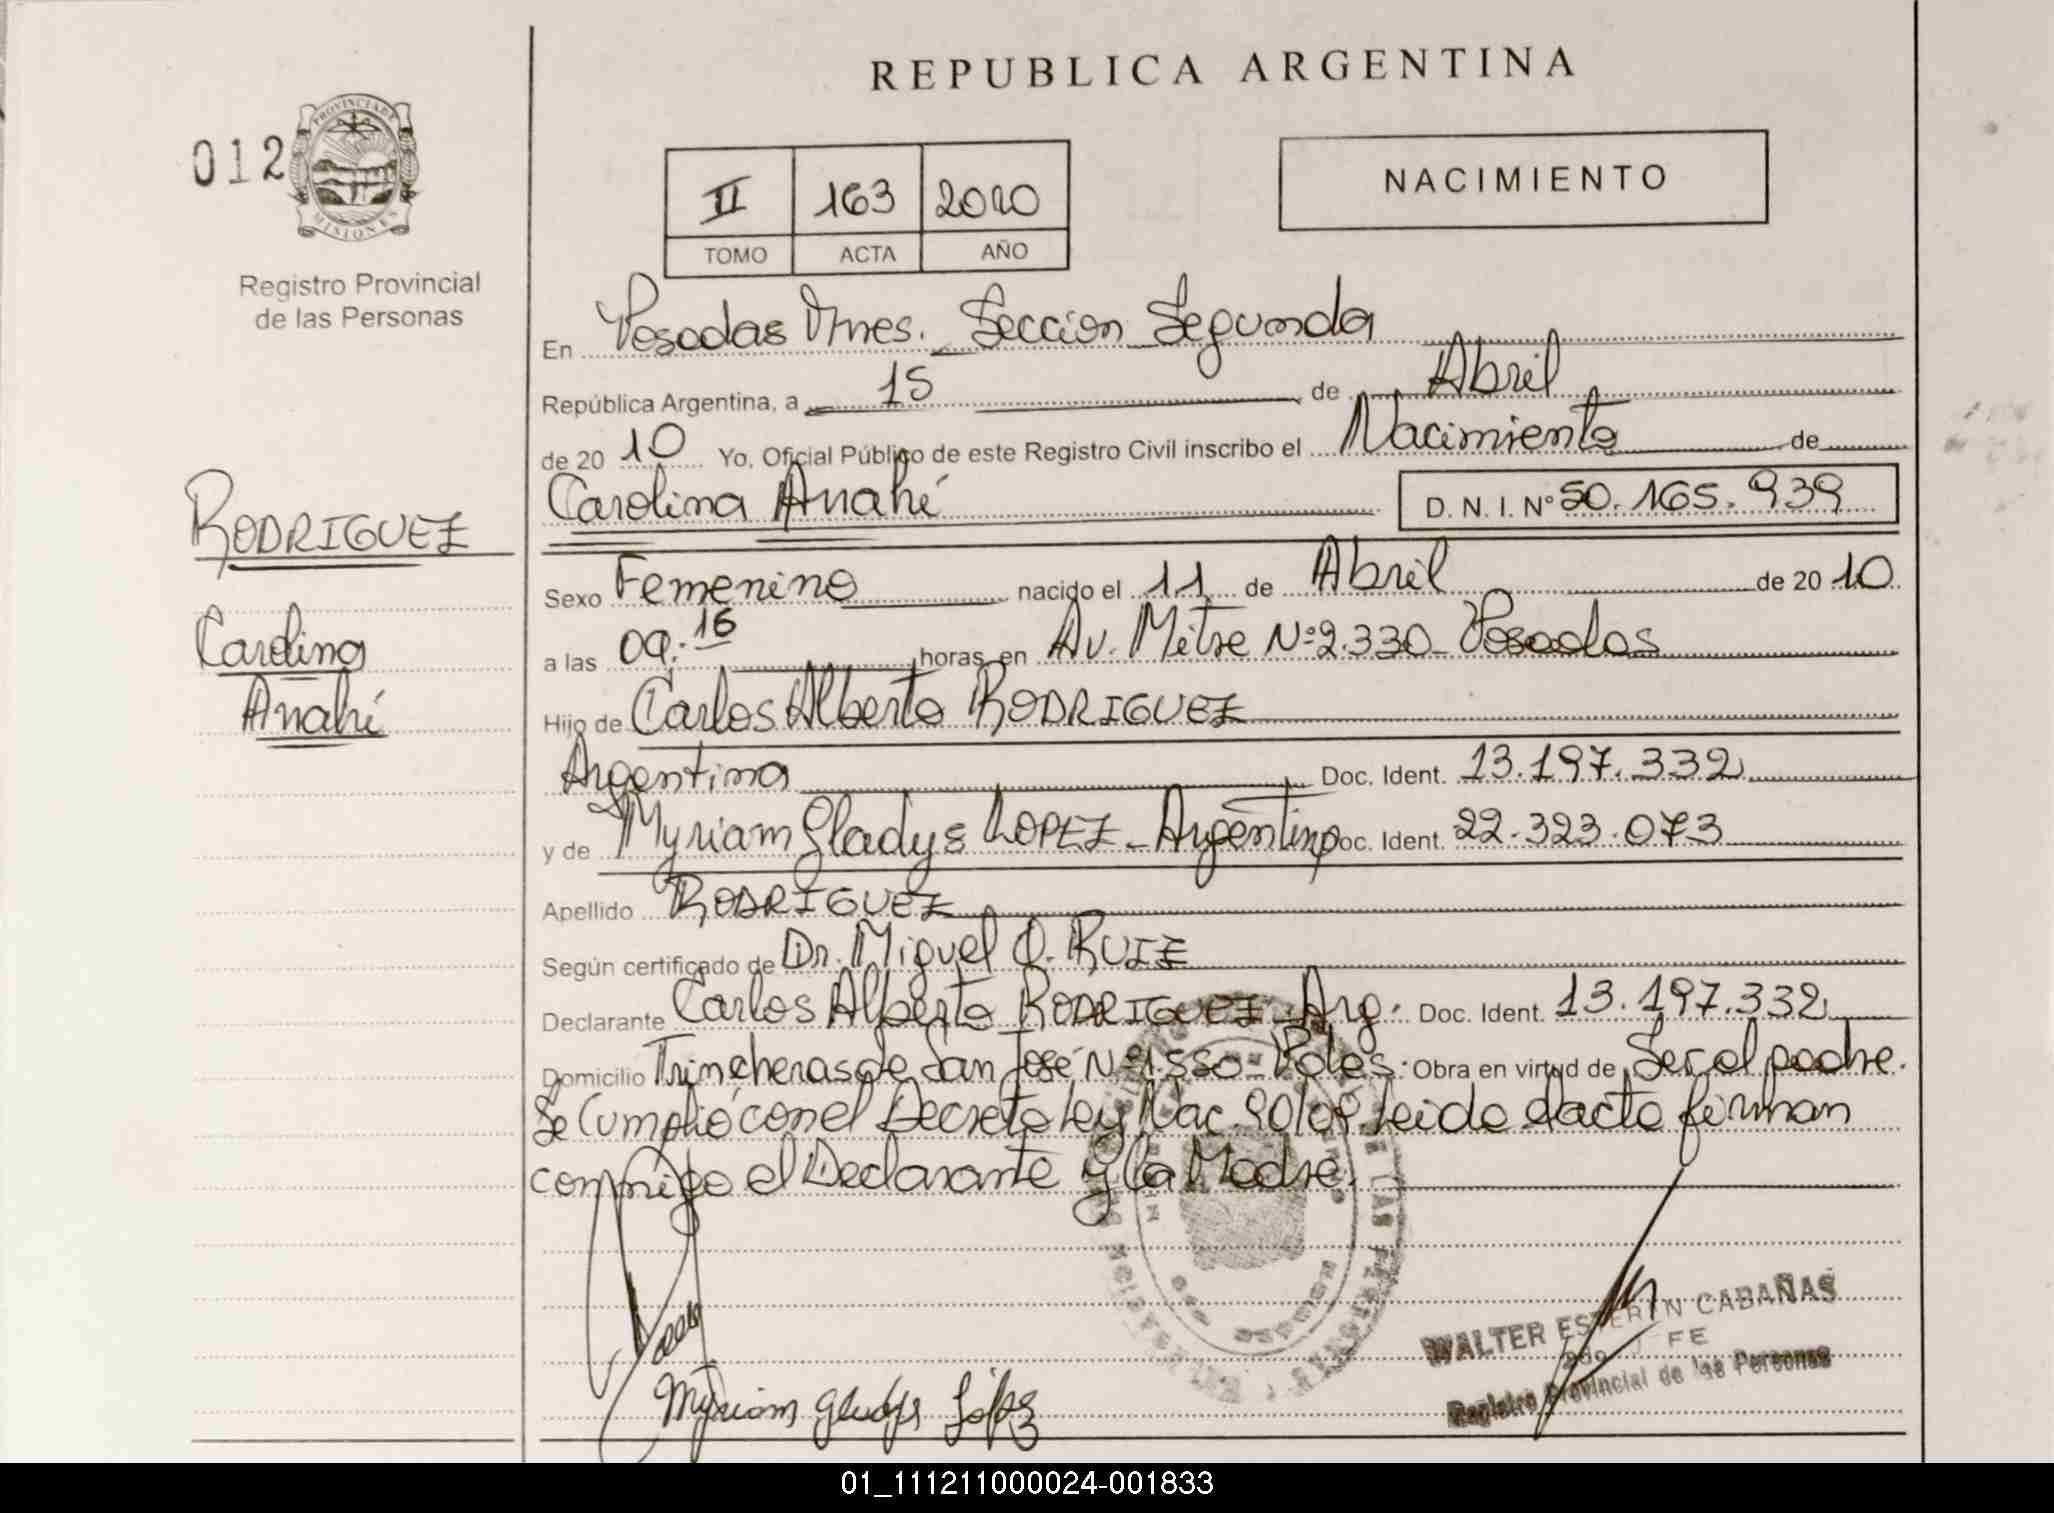 REPUBLICA ARGENTINA
012
PROVINCIA DE
MISIONES
Registro Provincial
de las Personas
II 163 2010
TOMO ACTA AÑO
NACIMIENTO
En Posadas Mnes. Sección Segunda
República Argentina, a 15 de Abril
de 2010 Yo, Oficial Público de este Registro Civil inscribo el Nacimiento de
Carolina Anahí D. N. I. Nº 50.165.939
RODRIGUEZ
Carolina
Anahí
Sexo Femenino nacido el 11 de Abril de 2010
a las 09:16 horas, en Av. Mitre Nº 2.330 - Posadas
Hijo de Carlos Alberto RODRIGUEZ
Argentina Doc. Ident. 13.197.332
y de Myriam Gladys LOPEZ - Argentina Doc. Ident. 22.323.073
Apellido RODRIGUEZ
Según certificado de Dr. Miguel O. RUIZ
Declarante Carlos Alberto RODRIGUEZ - Arg. Doc. Ident. 13.197.332
Domicilio Trincheras de San José Nº 1.550 - Pdas. Obra en virtud de Ser el padre.
Se Cumplió con el Decreto Ley Nac. 90/09. Leido el acta firman
conmigo el Declarante y la Madre.
WALTER ESTEBAN CABAÑAS
FE
Registro Provincial de las Personas
Myriam Gladys López
01_111211000024-001833